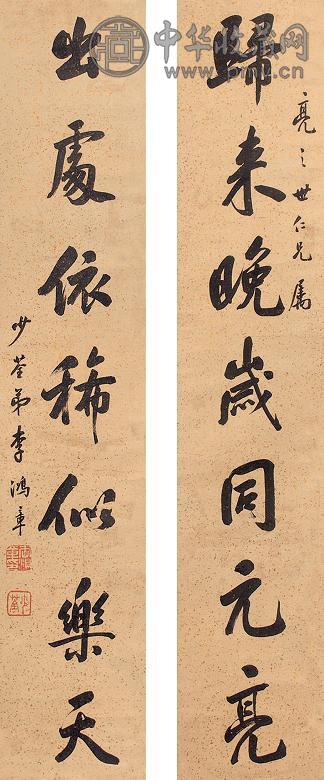 中华收藏网
歸来晚歲同元亮
亮之世仁兄属
出處依稀似樂天
少荃弟李鴻章